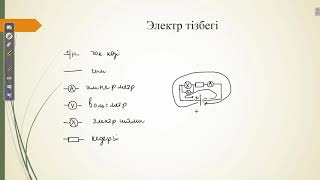 Электр тізбегі
ток көзі
сым
A амперметр
V вольтметр
электр шамы
кедергі
+ -